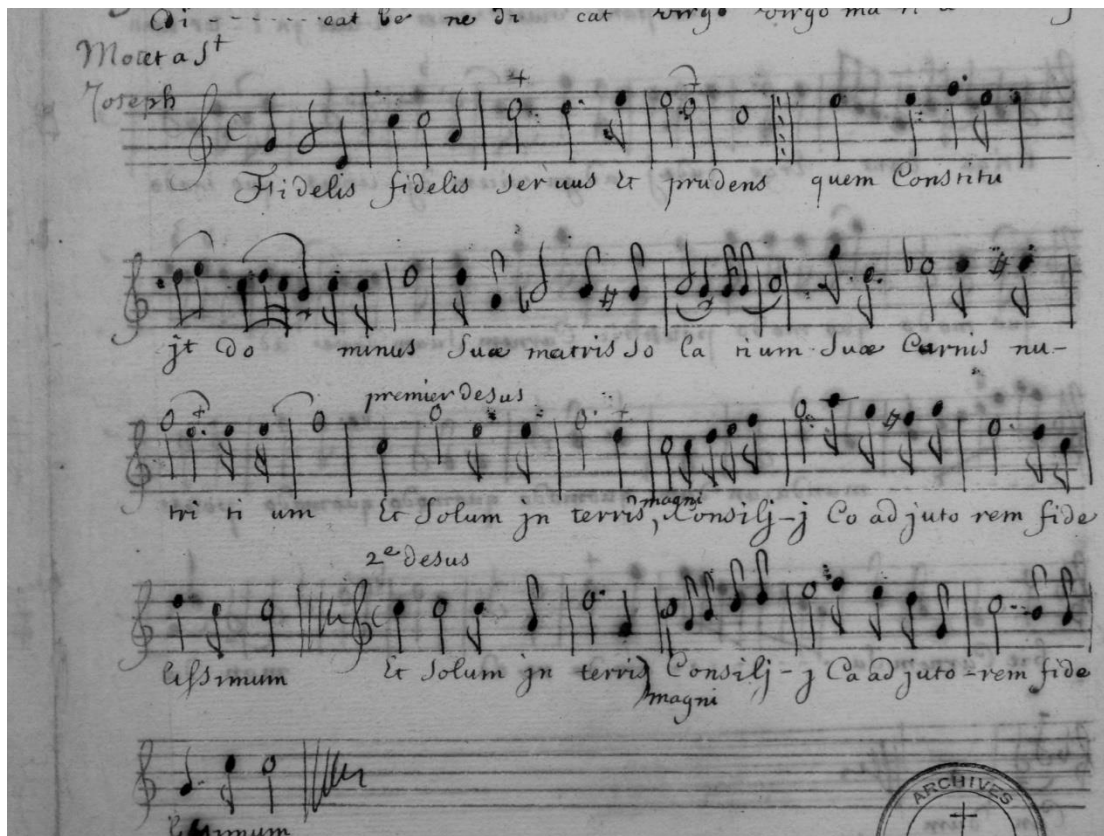 Di - - - - - - cat be ne di cat virgo virgo ma ri a
Motet a St
Joseph
Fidelis fidelis seruus Et prudens quem Constitu
jt do minus Suæ matris so la tium Suæ Carnis nu-
premier desus
tri ti um Et Solum jn terris, magni Consilj-j Co ad juto rem fide
2e desus
lissimum Et Solum jn terris magni Consilj-j Ca ad juto-rem fide
lissimum
ARCHIVES